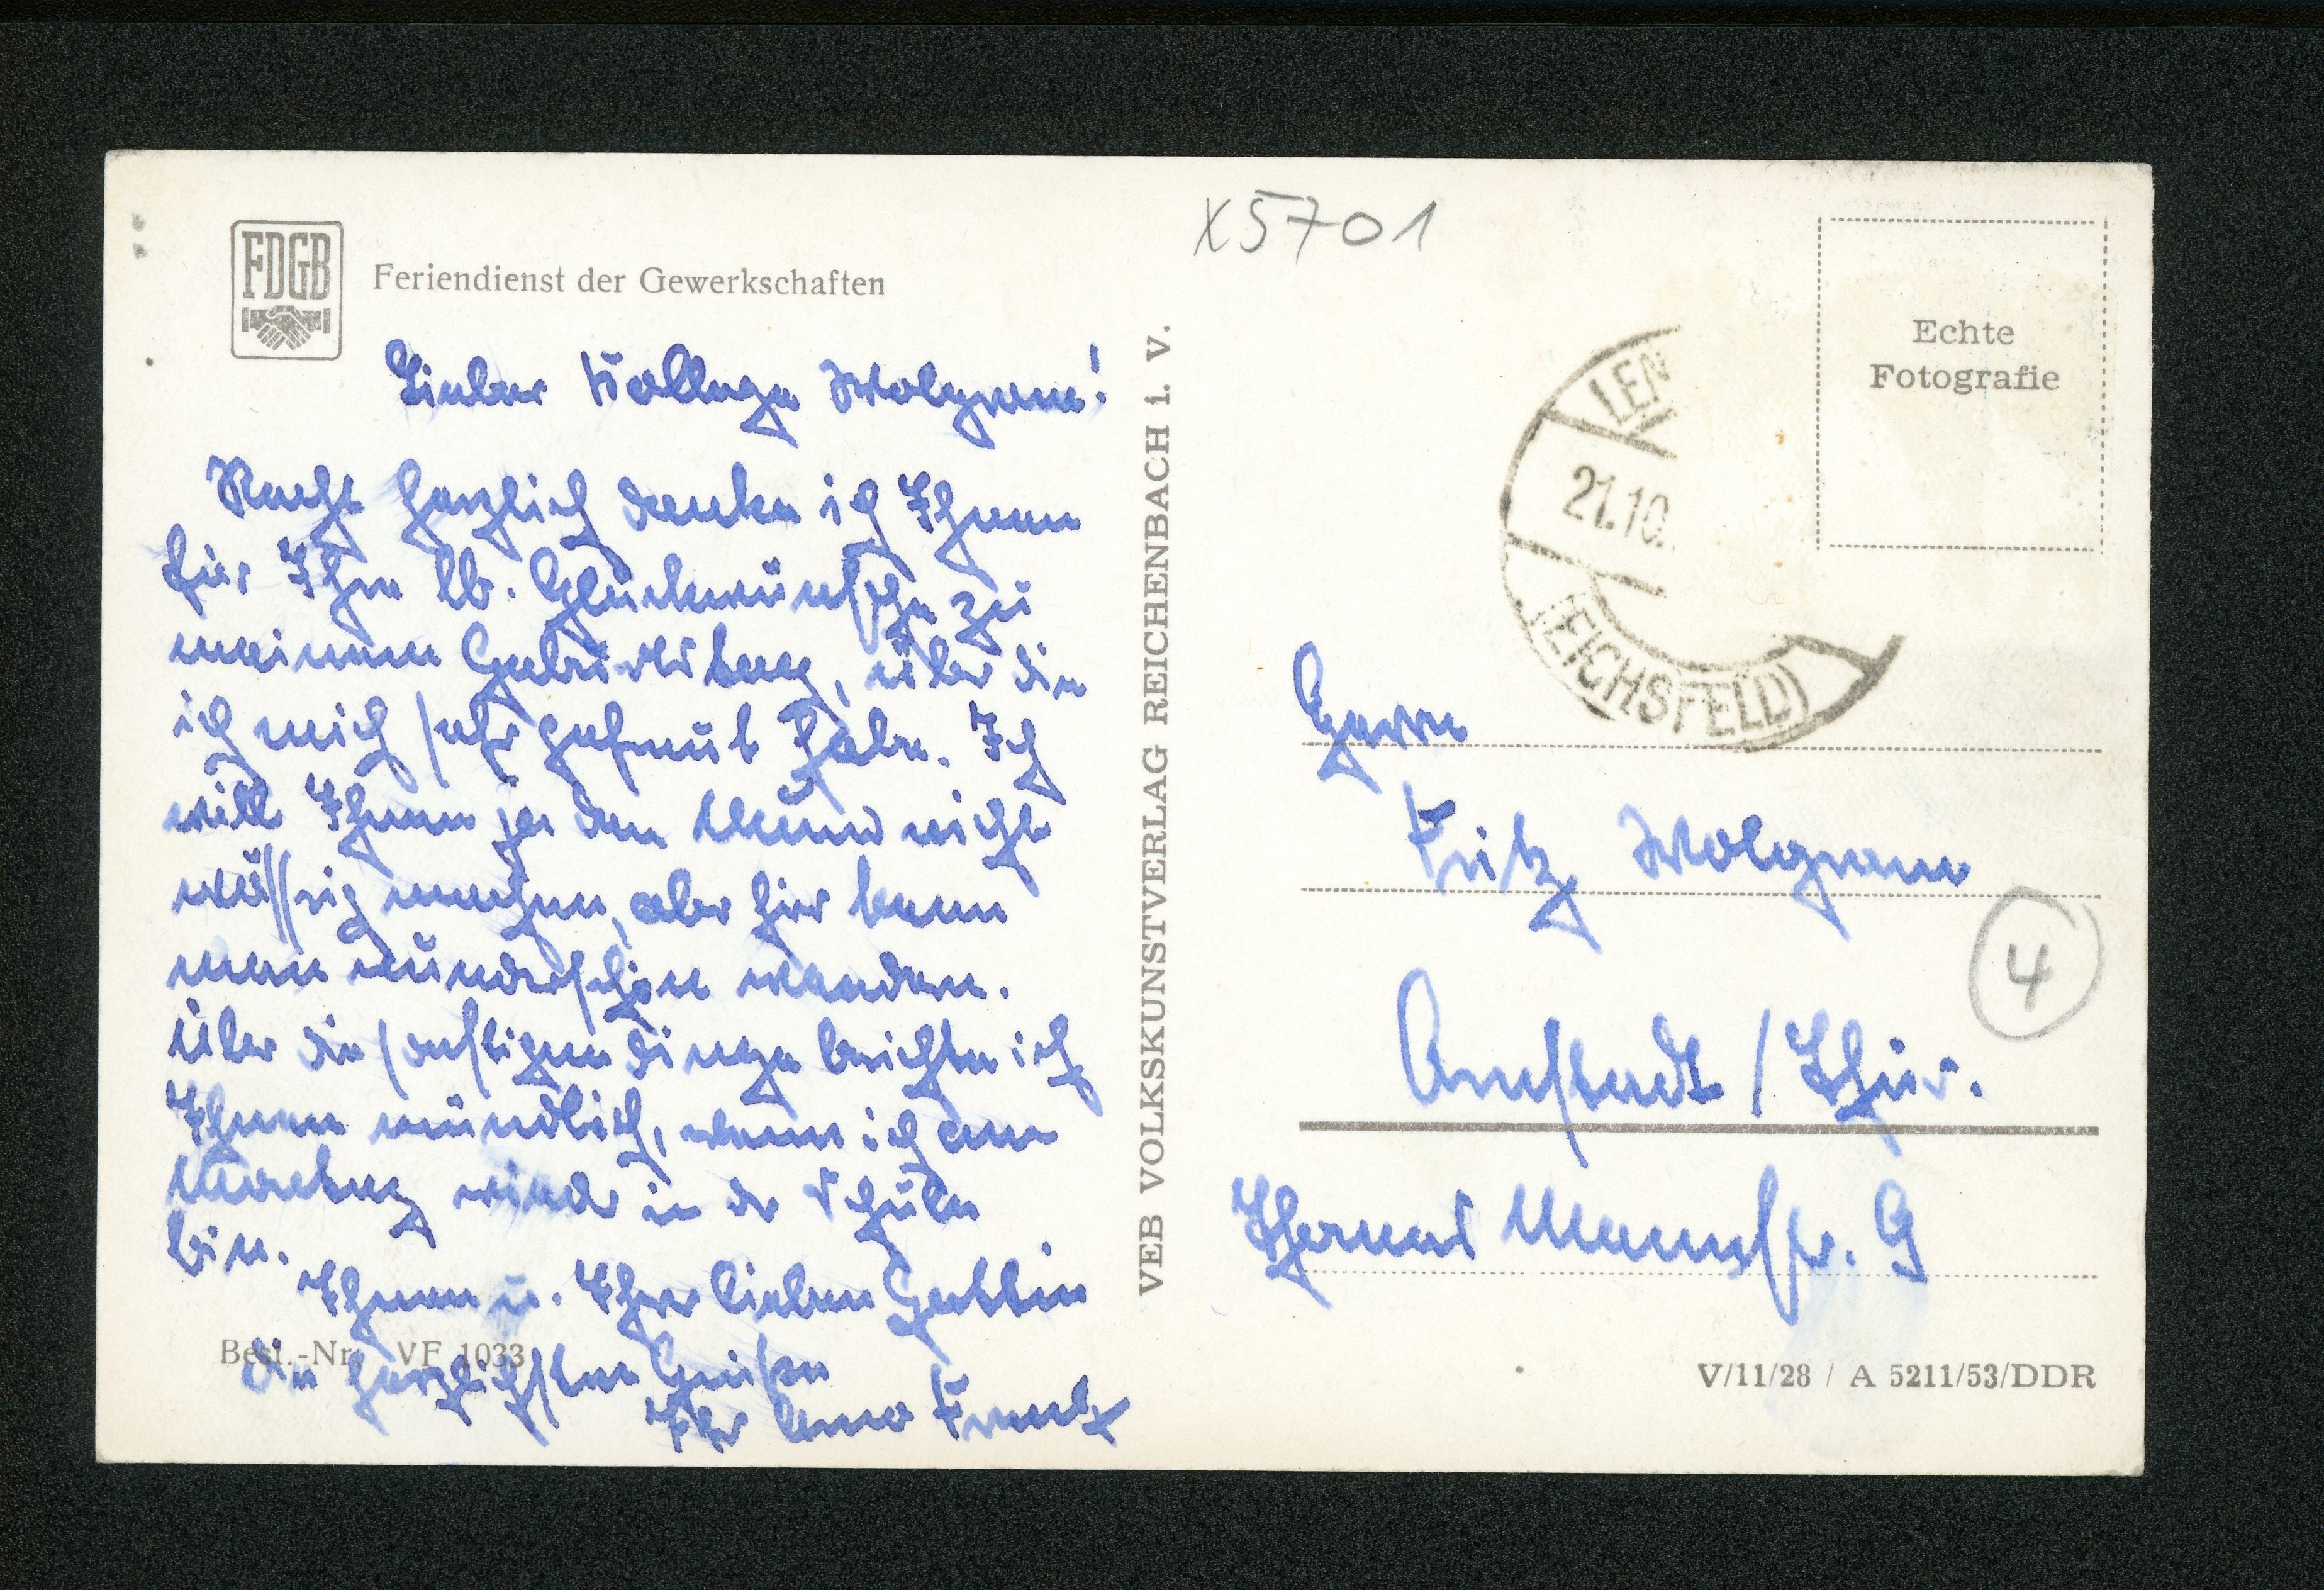 FDGB
Feriendienst der Gewerkschaften
Lieber Kollege Wolgram!
Recht herzlich danke ich Ihnen
für Ihre lb. Glückwünsche zu
meinem Geburtstag, über die
ich mich sehr gefreut habe. Ich
will Ihnen ja den Mund nicht
wässrig machen, aber hier kann
man wunderschön wandern.
Über die sonstigen Dinge berichte ich
Ihnen mündlich, wenn ich am
Montag wieder in der Schule
bin.
Ihnen u. Ihrer lieben Gattin
die herzlichsten Grüße
Ihr
Best.-Nr. VF 1033
VEB VOLKSKUNSTVERLAG REICHENBACH i. V.
X5701
Echte
Fotografie
LEN
21.10.
(EICHSFELD)
Herrn
Fritz Wolgram
4
Arnstadt / Thür.
Thomas Mannstr. 9
V/11/28 / A 5211/53/DDR